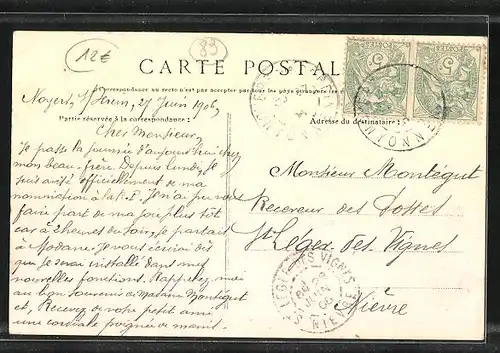 12€
89
CARTE POSTALE
(La Correspondance au recto n'est pas acceptée par tous les pays étrangers
Noyers, S/Serein, 27 Juin 1906,
Partie réservée à la correspondance :
Adresse du destinataire :
Cher Monsieur,
Je passe la journée d'aujourd'hui chez
mon beau-frère. Depuis lundi, je
suis avisé officiellement de ma
nomination à
Je n'ai pu vous
faire part de ma joie plus tôt
car à 2 heures du soir, je partais
à Modane. Je vous écrirai dès
que je serai installé dans mes
nouvelles fonctions. Rappelez-moi
au bon souvenir de Madame Montégut
et, Recevez de votre petit ami
une cordiale poignée de main.
Monsieur Montégut
Receveur des Postes
St Léger-des-Vignes
Nièvre
POSTES
5
5
YONNE
YONNE
ST LEGER DES VIGNES
28
JUIN
06
NIEVRE